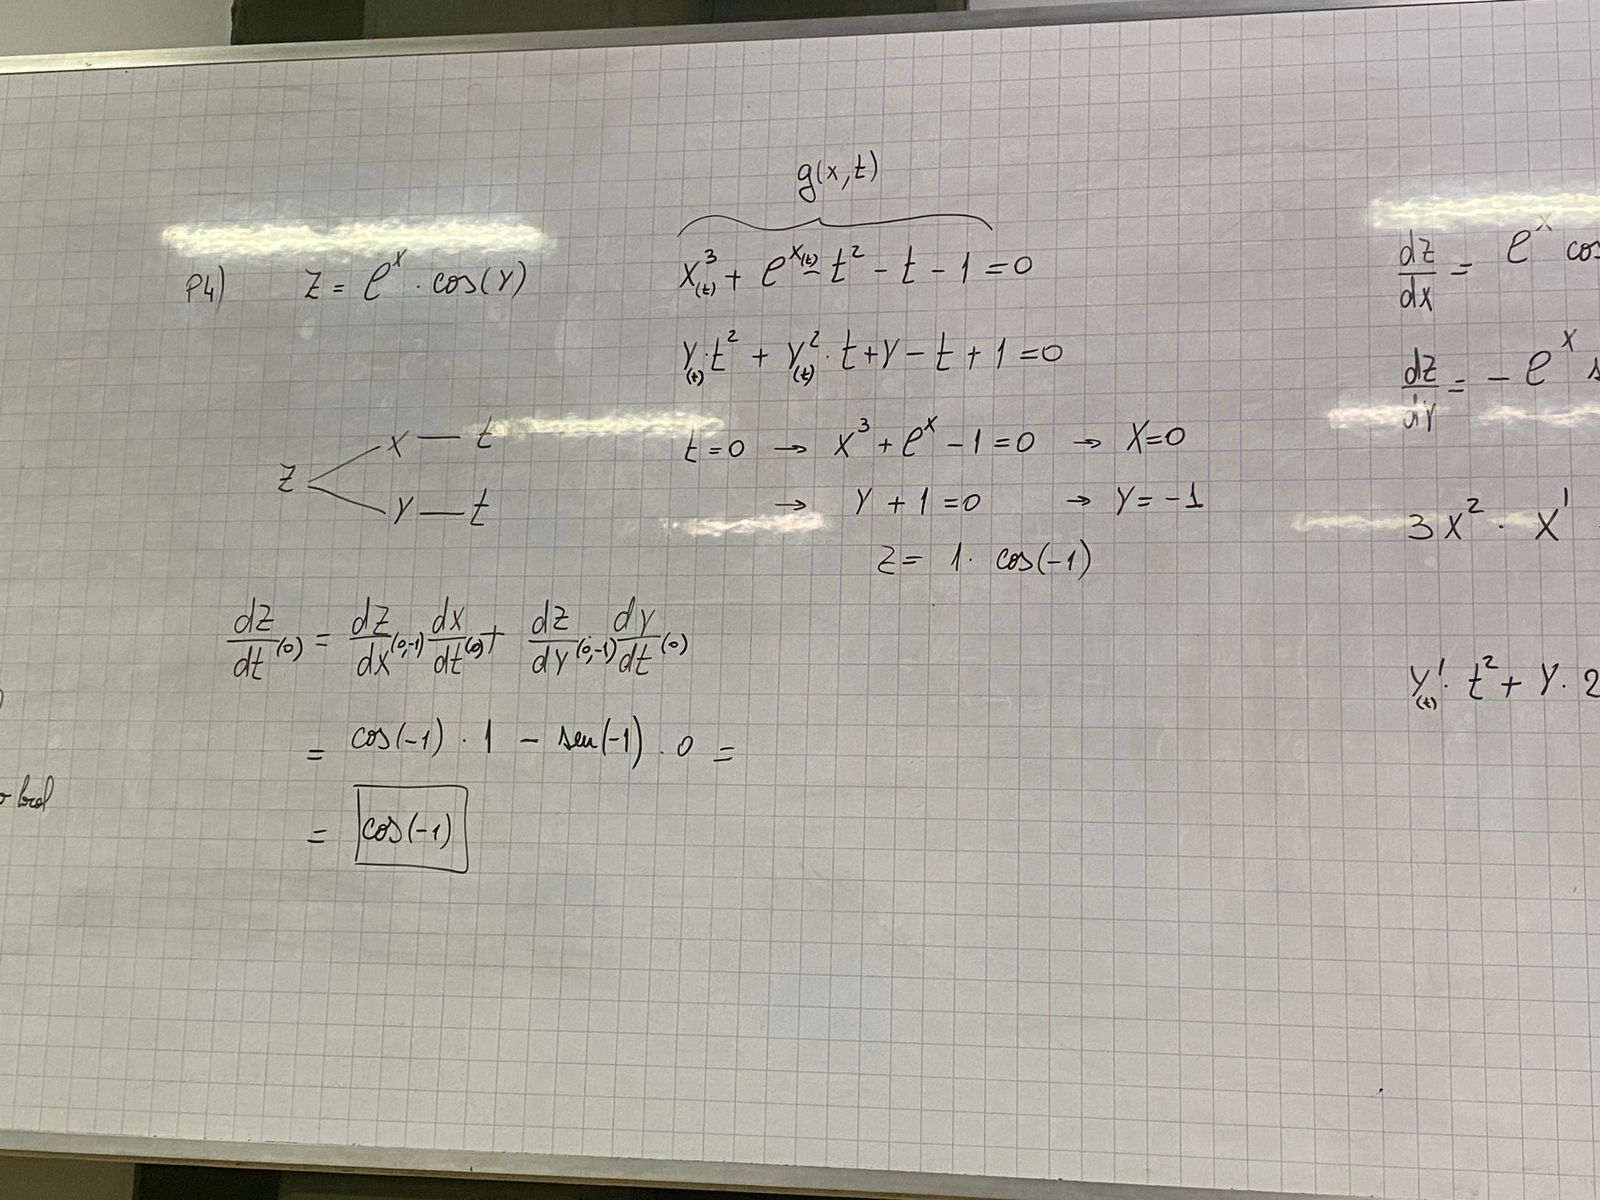 g(x,t)
P4) Z = e^x · cos(Y)
x³(t) + e^x(t) - t² - t - 1 = 0
Y(t)·t² + Y²(t)·t + Y - t + 1 = 0
Z
x — t
Y — t
t=0 → x³ + e^x - 1 = 0 → X=0
→ Y + 1 = 0 → Y = -1
Z = 1· cos(-1)
dz/dt (0) = dz/dx (0,-1) dx/dt (0) + dz/dy (0,-1) dy/dt (0)
= cos(-1) · 1 - sen(-1) · 0 =
= cos(-1)
dz/dx = e^x cos
dz/dy = - e^x s
3x² · x'
Y'(t) · t² + Y · 2